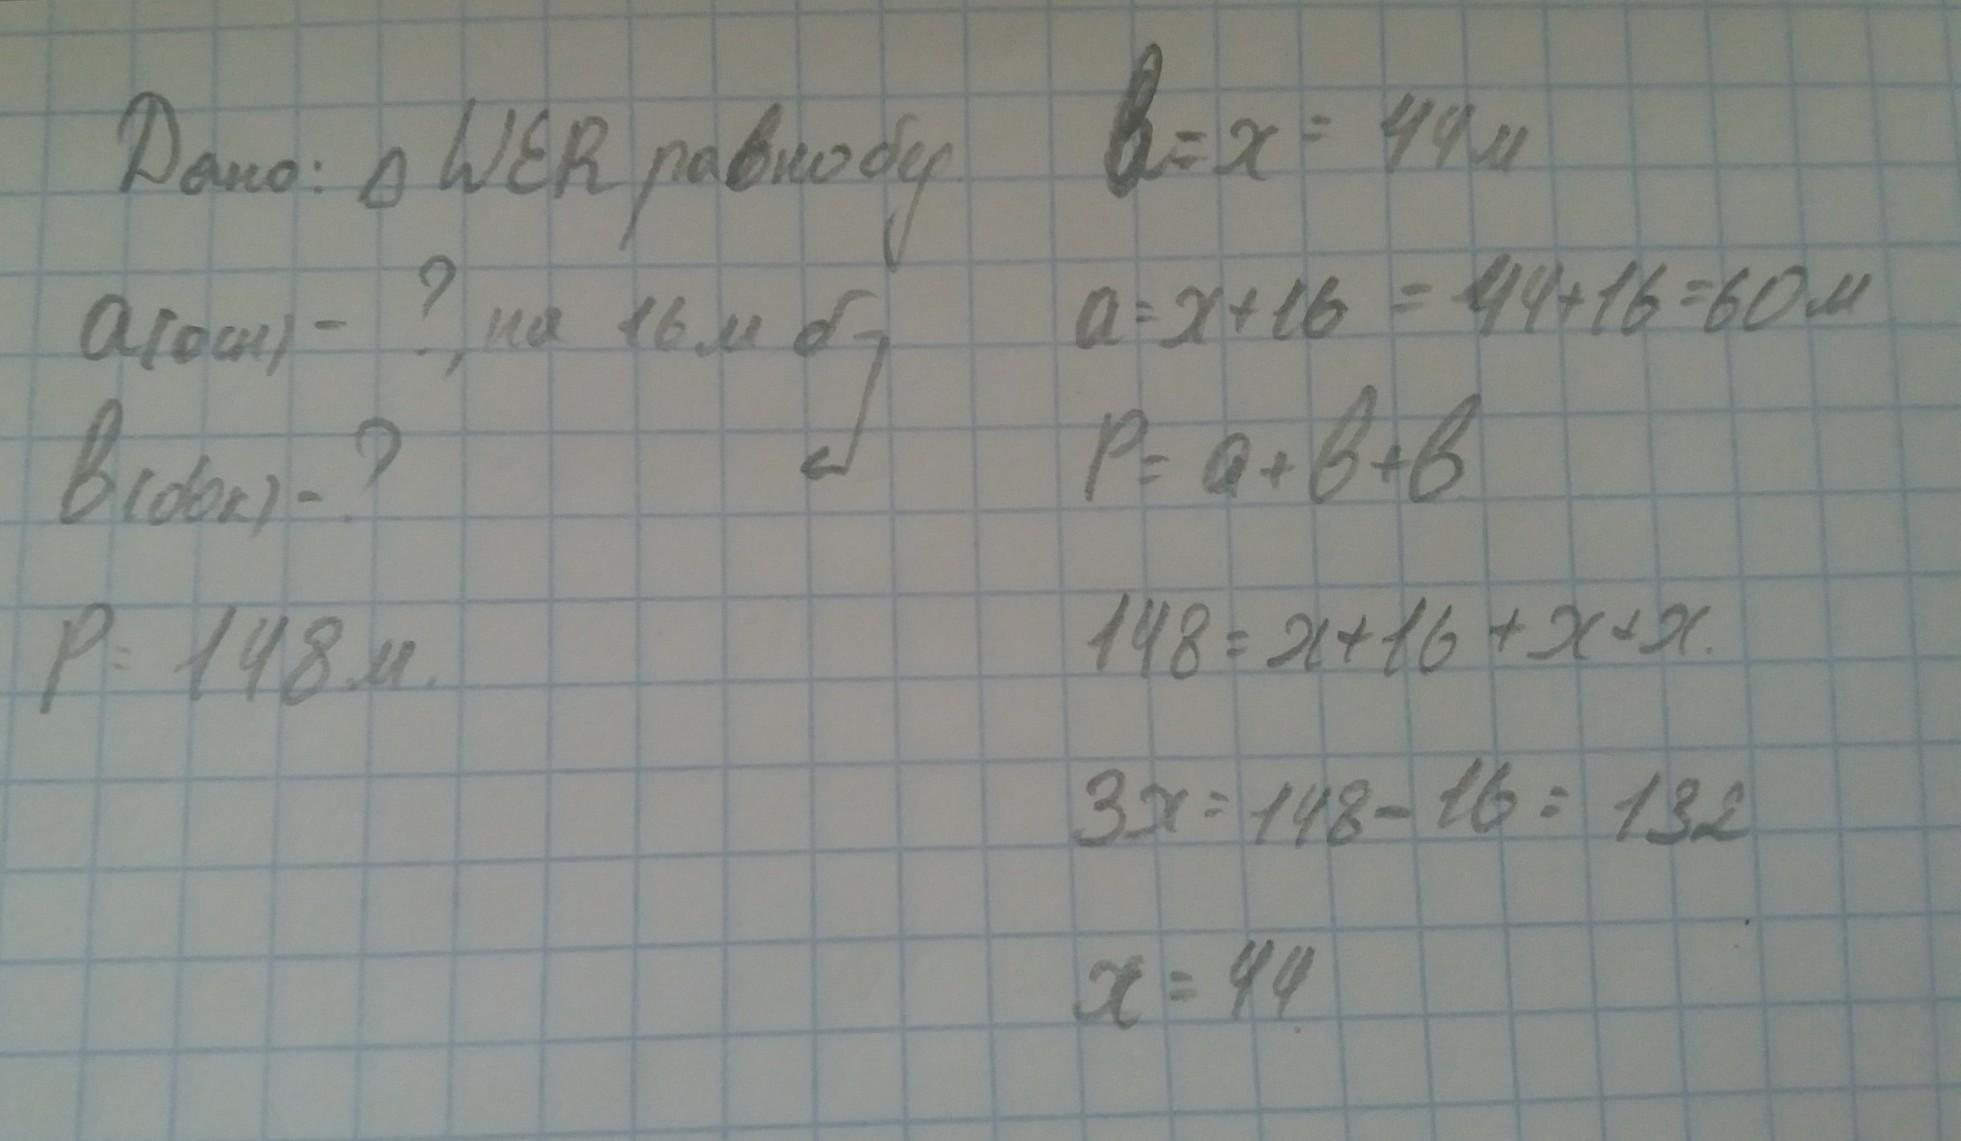 Дано: △ WER равнобед.
a(осн) - ?, на 16 м б
b(бок) - ?
P = 148 м.
b = x = 44 м
a = x + 16 = 44 + 16 = 60 м
P = a + b + b
148 = x + 16 + x + x.
3x = 148 - 16 = 132
x = 44